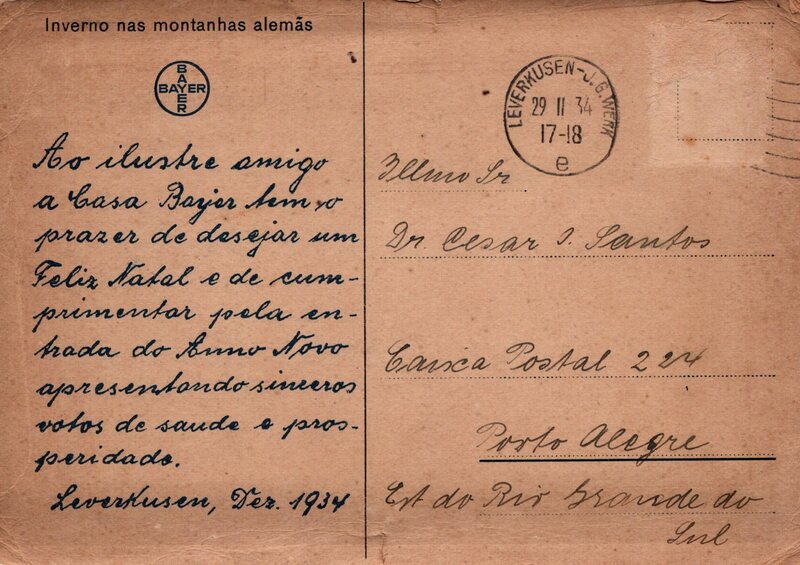 Inverno nas montanhas alemãs
BAYER
BAYER
Ao ilustre amigo
a Casa Bayer tem o
prazer de desejar um
Feliz Natal e de cum-
primentar pela en-
trada do Anno Novo
apresentando sinceros
votos de saude e pros-
peridade.
Leverkusen, Dez. 1934
LEVERKUSEN-J.G.WERK
29 11 34
17-18
e
Illmo Sr
Dr. Cesar J. Santos
Caixa Postal 224
Porto Alegre
Est do Rio Grande do
Sul